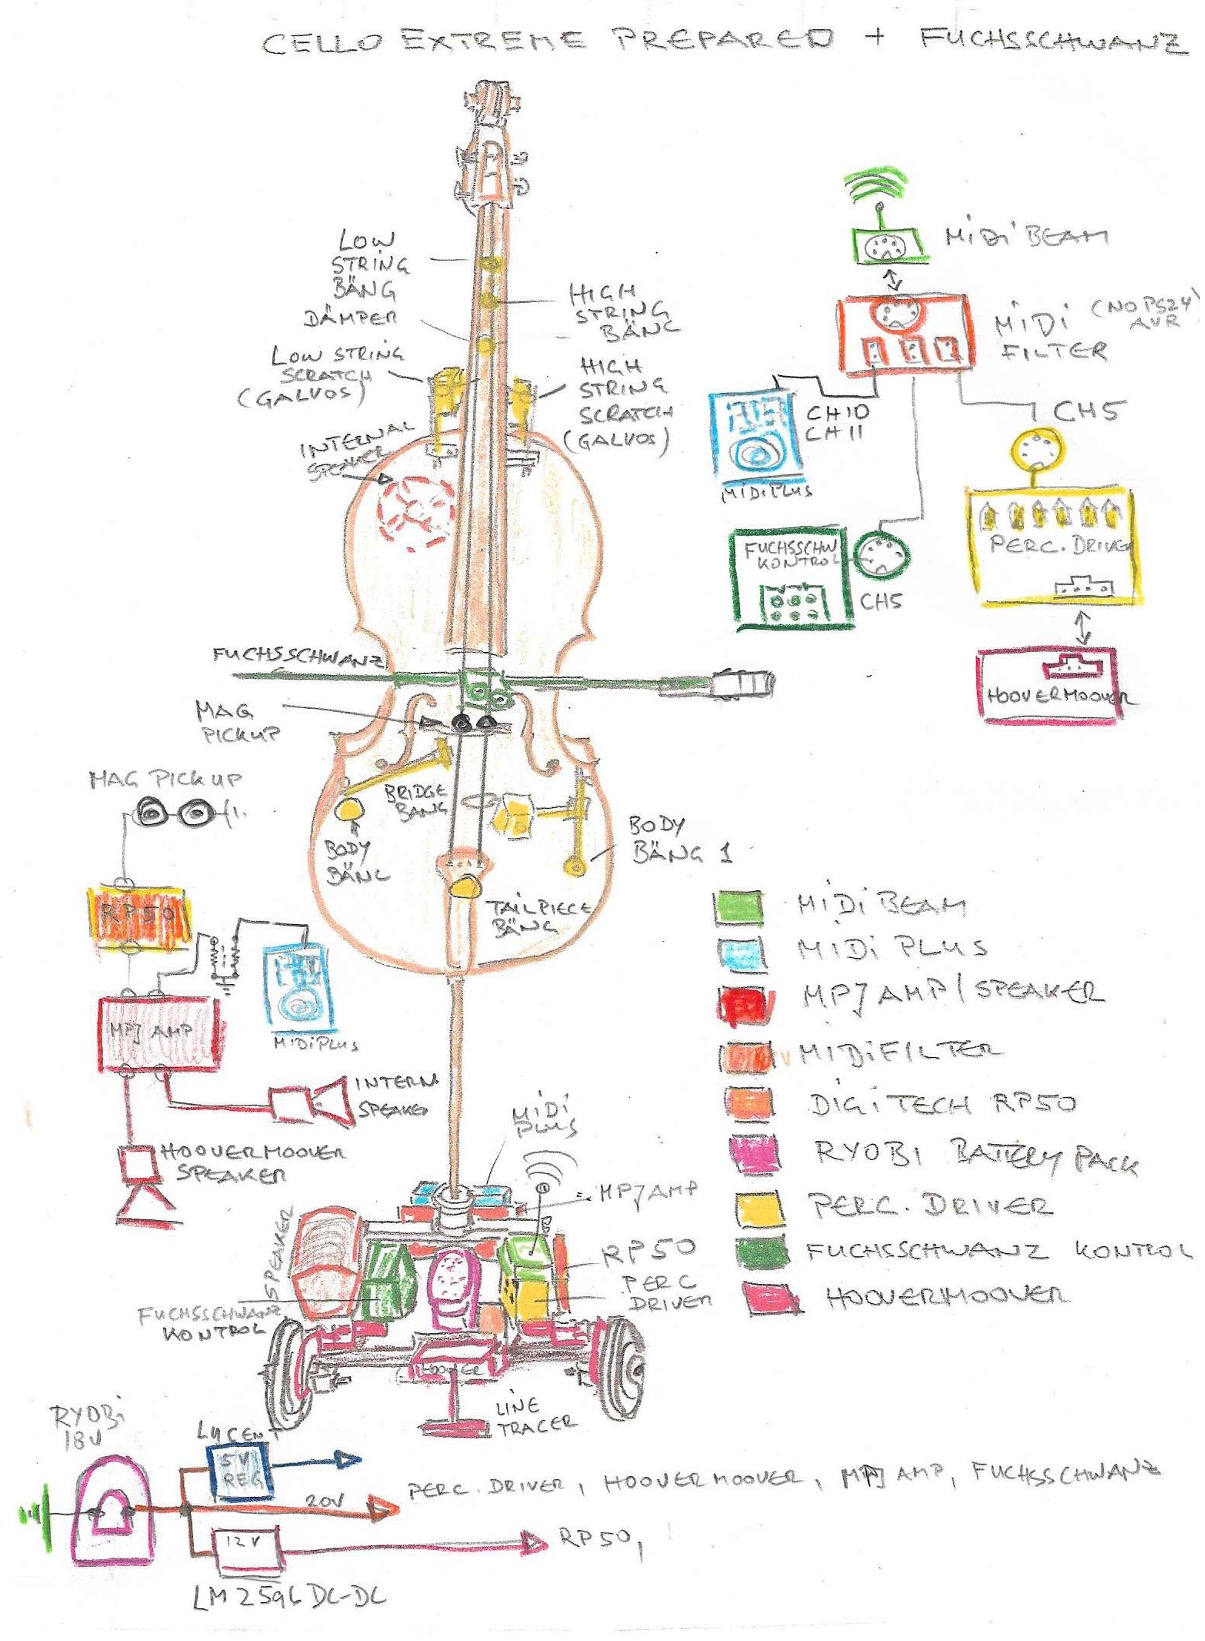 CELLO EXTREME PREPARED + FUCHSSCHWANZ
LOW
STRING
BÄNG
DÄMPER
HIGH
STRING
BÄNG
LOW STRING
SCRATCH
(GALVOS)
HIGH
STRING
SCRATCH
(GALVOS)
INTERNAL
SPEAKER
FUCHSSCHWANZ
MAG
PICKUP
BRIDGE
BANG
BODY
BÄNG
BODY
BÄNG 1
TAILPIECE
BÄNG
MIDI BEAM
MIDI (NO PS24)
AVR
FILTER
CH10
CH11
MIDIPLUS
CH5
PERC. DRIVER
FUCHSSCHW
KONTROL
CH5
HOOVERMOOVER
MAG PICKUP
RP50
MPJ AMP
MIDIPLUS
INTERN
SPEAKER
HOOVERMOOVER
SPEAKER
MIDI BEAM
MIDI PLUS
MPJ AMP / SPEAKER
MIDIFILTER
DIGITECH RP50
RYOBI BATTERY PACK
PERC. DRIVER
FUCHSSCHWANZ KONTROL
HOOVERMOOVER
MIDI
PLUS
MPJ AMP
SPEAKER
RP50
PERC
DRIVER
FUCHSSCHWANZ
KONTROL
HOOVER
LINE
TRACER
RYOBI
18V
LUCENT
5V
REG
20V
PERC. DRIVER, HOOVERMOOVER, MPJ AMP, FUCHSSCHWANZ
12V
RP50,
LM2596 DC-DC